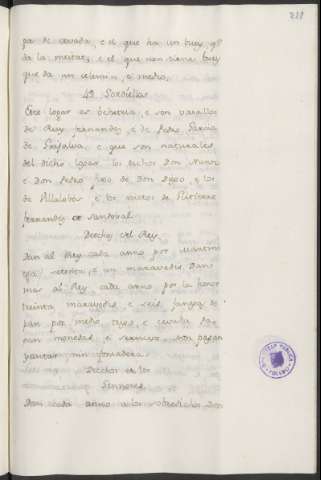 218
ga de cevada, e el que ha un buey q̃
da la meitat, e el que non tiene buey
que da un celemin, e medio.
49 Sordiellos
Este logar es behetria, e son vasallos
de Ruy fernandez, e de Pedro Garcia
de Grijalva, e que son naturales
del dicho logar los dichos Don Nuno
e Don Pedro fijo de Don Diego, e los
de Villalobos e los nietos de Gutierre
fernandez de Sandoval
Derechos del Rey
Dan al Rey cada anno por
e un maravedis Dan
mas al Rey cada anno por la
treinta maravedis e seis fanegas de
pan por medio, trigo, e cevada
gan monedas e servicios non pagan
yantar, nin fonsadera.
Derechos de los
Sennores
Dan cada anno a los sobredichos Don
BIBLIOTECA PUBLICA
TOLEDO